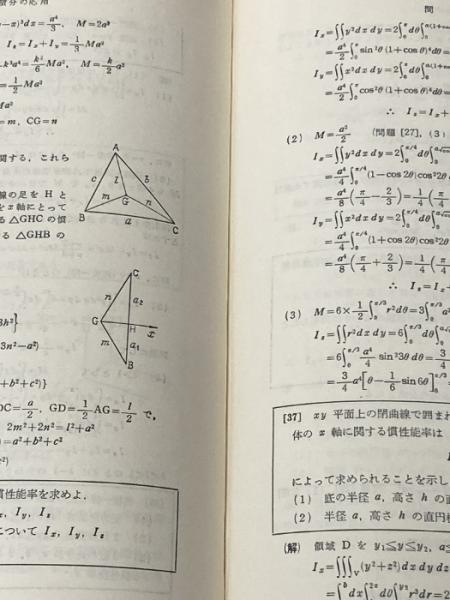 積分の応用
-x)³dx=a⁴/3, M=2a³
I_z=I_x+I_y=1/3 Ma²
k³a⁴=k²/6 Ma², M=k/2 a²
=1/2 Ma²
Ma²
=m, CG=n
関する，これら
A
c
l
b
m
G
n
B
a
C
線の足を H と
を x 軸にとって
る △GHC の慣
る △GHB の
C
n
a₂
G
H
x
m
a₁
B
3h²}
3n²-a²)
+b²+c²)}
DC=a/2, GD=1/2 AG=l/2 で,
2m²+2n²=l²+a²
)=a²+b²+c²
c²)
慣性能率を求めよ．
x, I_y, I_z
について I_x, I_y, I_z
問
I_x=∬y²dx dy=2∫
=a⁴/2∫ sin²θ(1+cosθ)⁴dθ=
I_y=∬x²dx dy=2∫
=a⁴/2∫ cos²θ(1+cosθ)⁴dθ=
∴ I_z=I_x+
(2) M=a²/2 (問題 [27], (3)
I_x=∬y²dx dy=4∫₀^{π/4} dθ∫
=a⁴/4∫₀^{π/4}(1-cos2θ)cos²2θ
=a⁴/8(π/4-2/3)=1/4(π
I_y=∬x²dx dy=4∫₀^{π/4} dθ∫
=a⁴/4∫₀^{π/4}(1+cos2θ)cos²2θ
=a⁴/8(π/4+2/3)=1/4(π
∴ I_z=I_x+
(3) M=6×1/2∫₀^{π/3} r²dθ=3∫₀^{π/3} a²
I_z=∬r²dx dy=6∫₀^{π/3} dθ∫
=6∫₀^{π/3} a⁴/4 sin²3θ dθ=3/4
=3/4 a⁴[θ-1/6 sin6θ]₀^{π/3}=
[37] xy 平面上の閉曲線で囲まれ
体の x 軸に関する慣性能率は
によって求められることを示し
(1) 底の半径 a, 高さ h の直
(2) 半径 a, 高さ h の直円柱
(解) 領域 D を y₁≦y≦y₂, a≦
I_x=∭_V(y²+z²)dx dy dz
=∫ₐᵇdx∫₀^{2π}dθ∫ r³dr=2